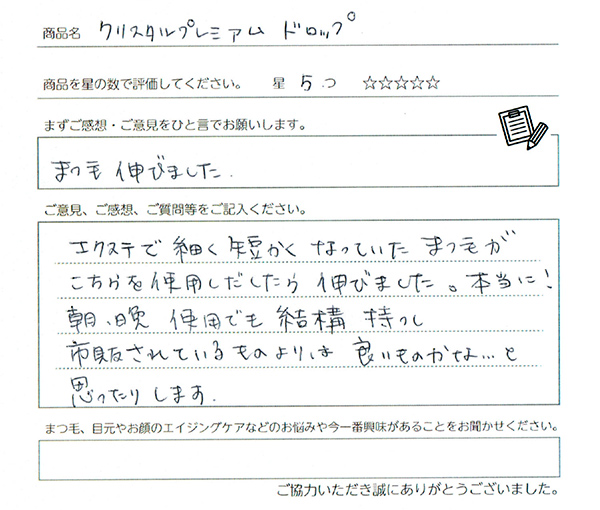 商品名 クリスタルプレミアム ドロップ
商品を星の数で評価してください。 星 5 つ ☆☆☆☆☆
まずご感想・ご意見をひと言でお願いします。
まつ毛 伸びました.
ご意見、ご感想、ご質問等をご記入ください。
エクステで 細く 短かく なっていた まつ毛が
こちらを使用しだしたら 伸びました。本当に!
朝、晩 使用でも 結構 持つし
市販されているものよりは 良いものかな…と
思ったりします.
まつ毛、目元やお顔のエイジングケアなどのお悩みや今一番興味があることをお聞かせください。
ご協力いただき誠にありがとうございました。